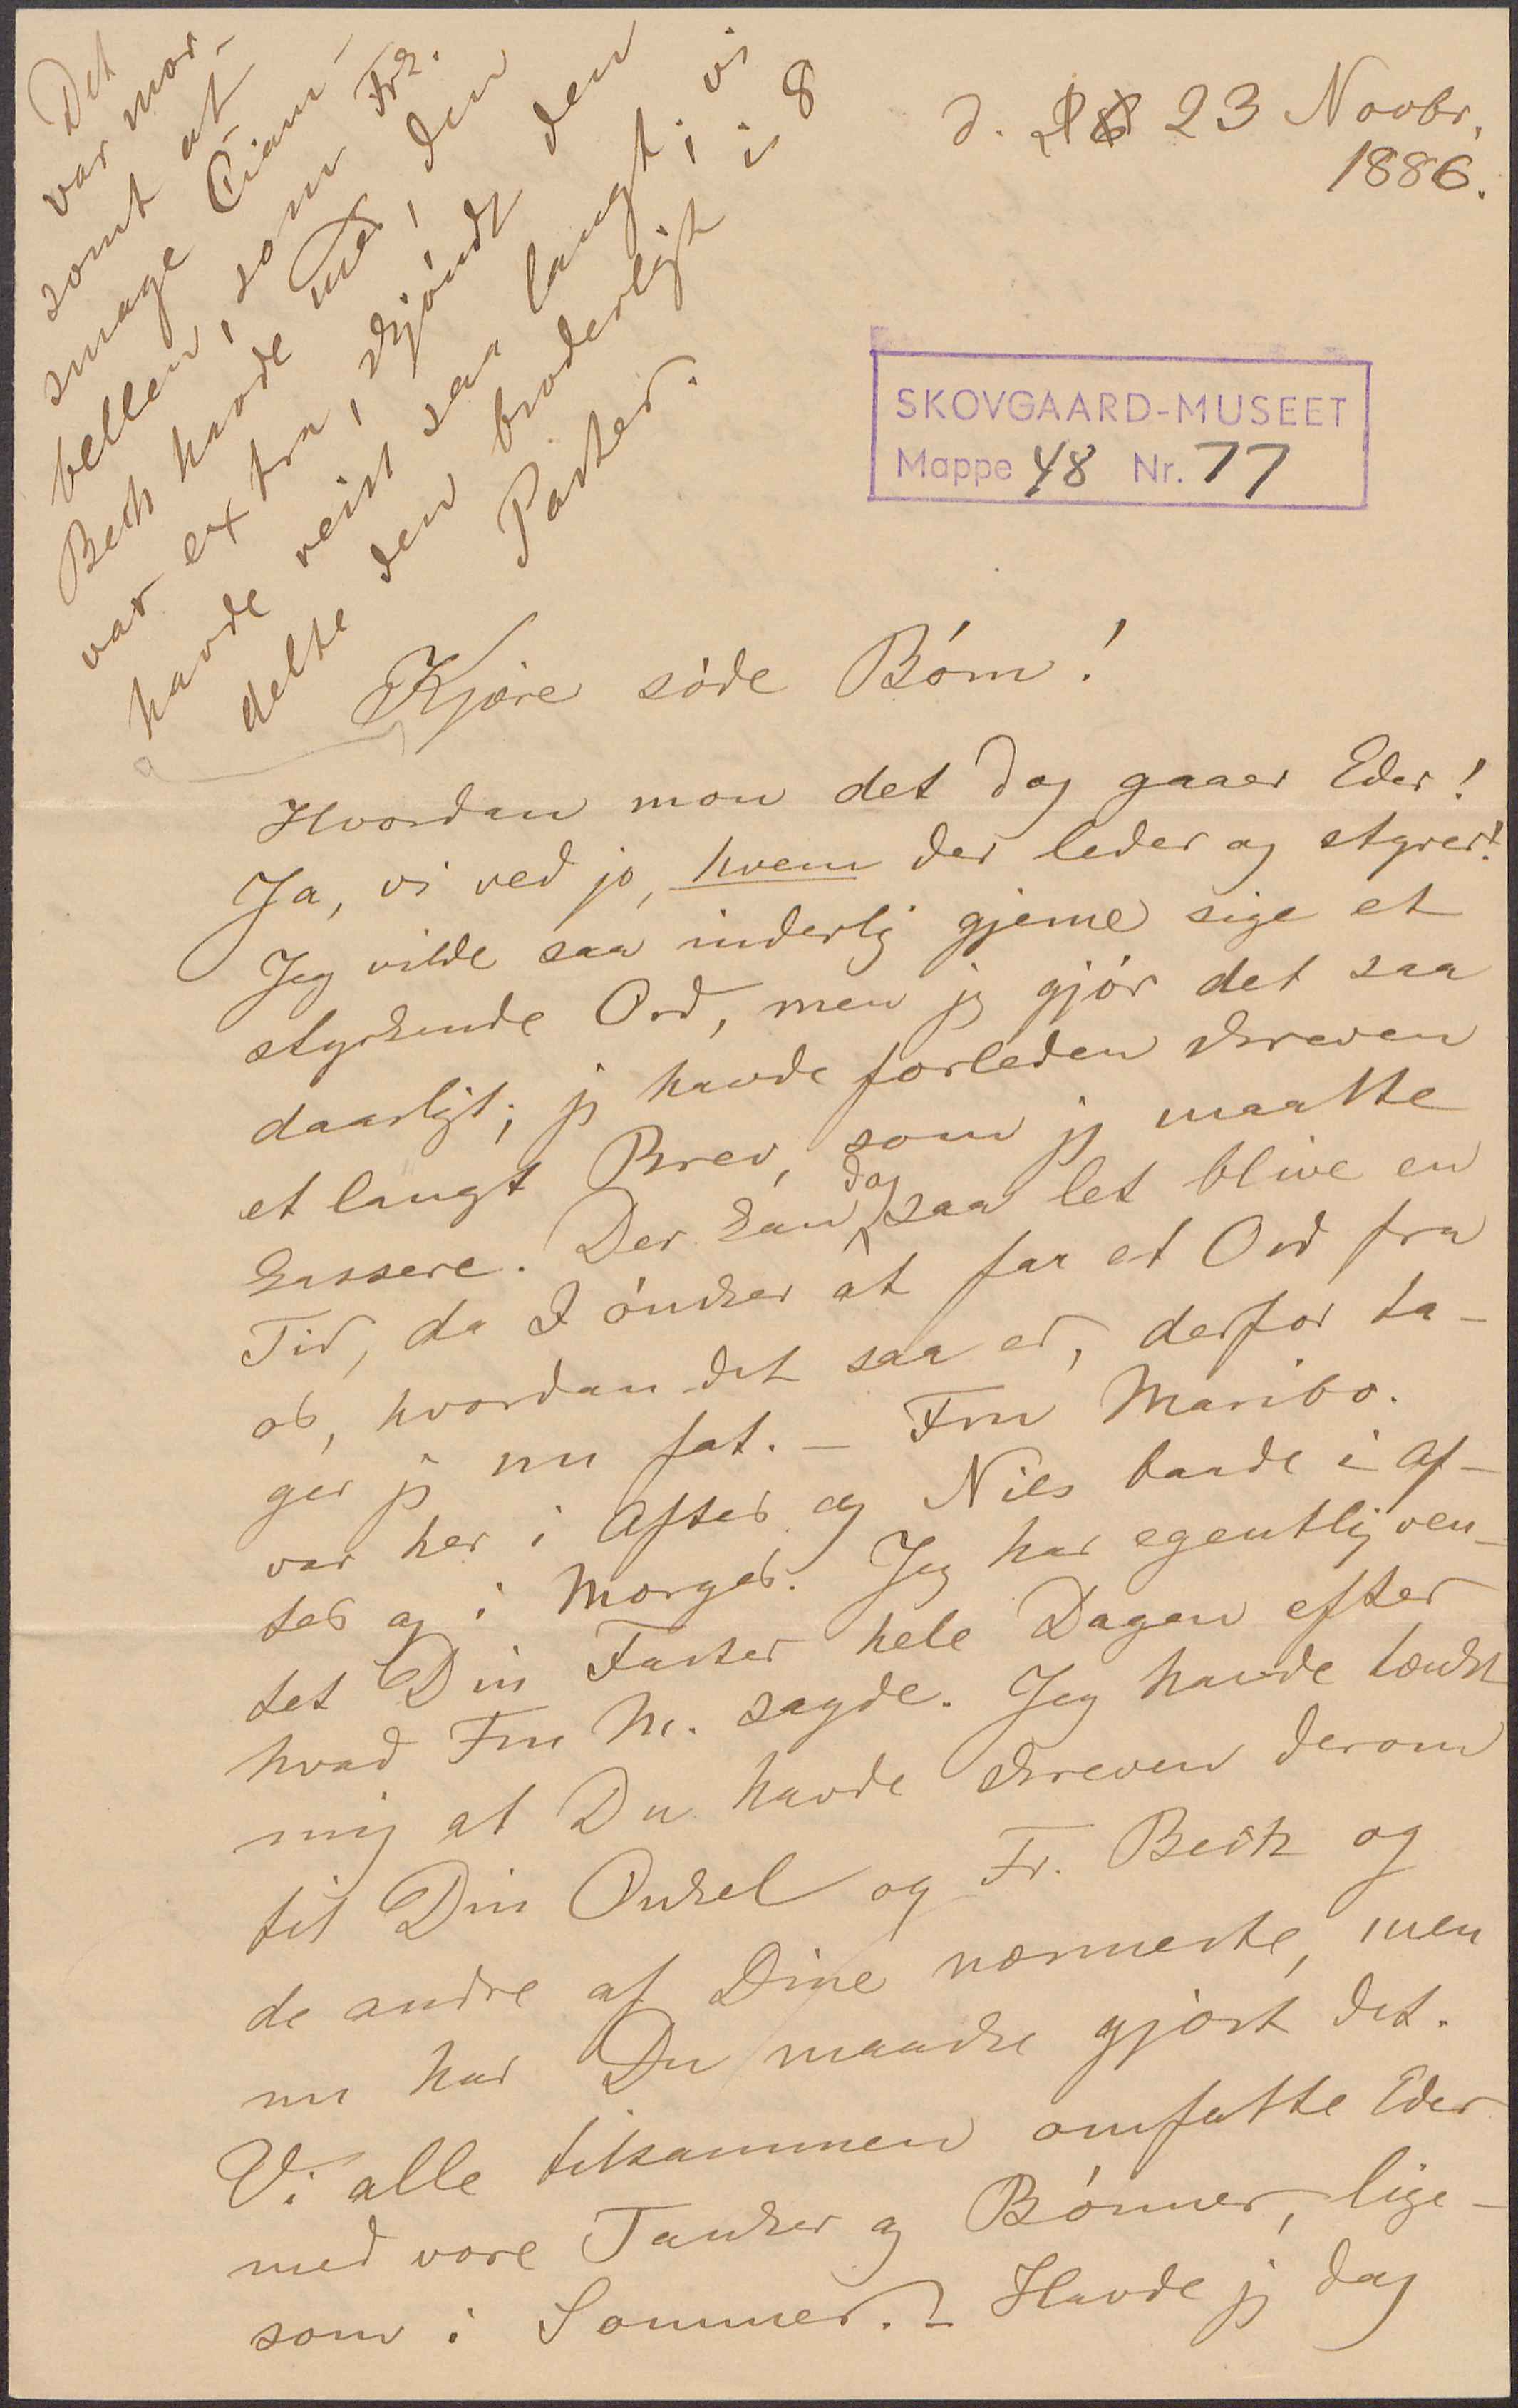 d. 23 Novbr.
1886.
SKOVGAARD-MUSEET
Mappe 48 Nr. 77
Kjære søde Børn!
Hvordan mon det dog gaaer Eder!
Ja, vi ved jo, hvem der leder og styrer!
Jeg vilde saa inderlig gjerne sige et
styrkende Ord, men jeg gjør det saa
daarligt; jeg havde forleden skreven
et langt Brev, som jeg maatte
kassere. Der kan dog saa let blive en
Tid, da I ønsker at faa et Ord fra
os, hvordan det saa er, derfor ta-
ger jeg nu fat. – Fru Maribo.
var her i Aftes og Niels baade i Af-
tes og i Morges. Jeg har egentlig ven-
tet Din Faster hele Dagen efter
hvad Fru M. sagde. Jeg havde tænkt
mig at Du havde skreven derom
til Din Onkel og Fr. Bech og
de andre af Dine nærmeste, men
nu har Du maaske gjort det.
Vi alle tilsammen omfatte Eder
med vore Tanker og Bønner, lige-
som i Sommer. – Havde jeg dog
Det
var mor-
somt at
smage Ciam-
bellen, som Frk.
Bech havde med, den
var extra, skjøndt den
havde reist saa langt, vi
delte den broderligt i 8
Parter.